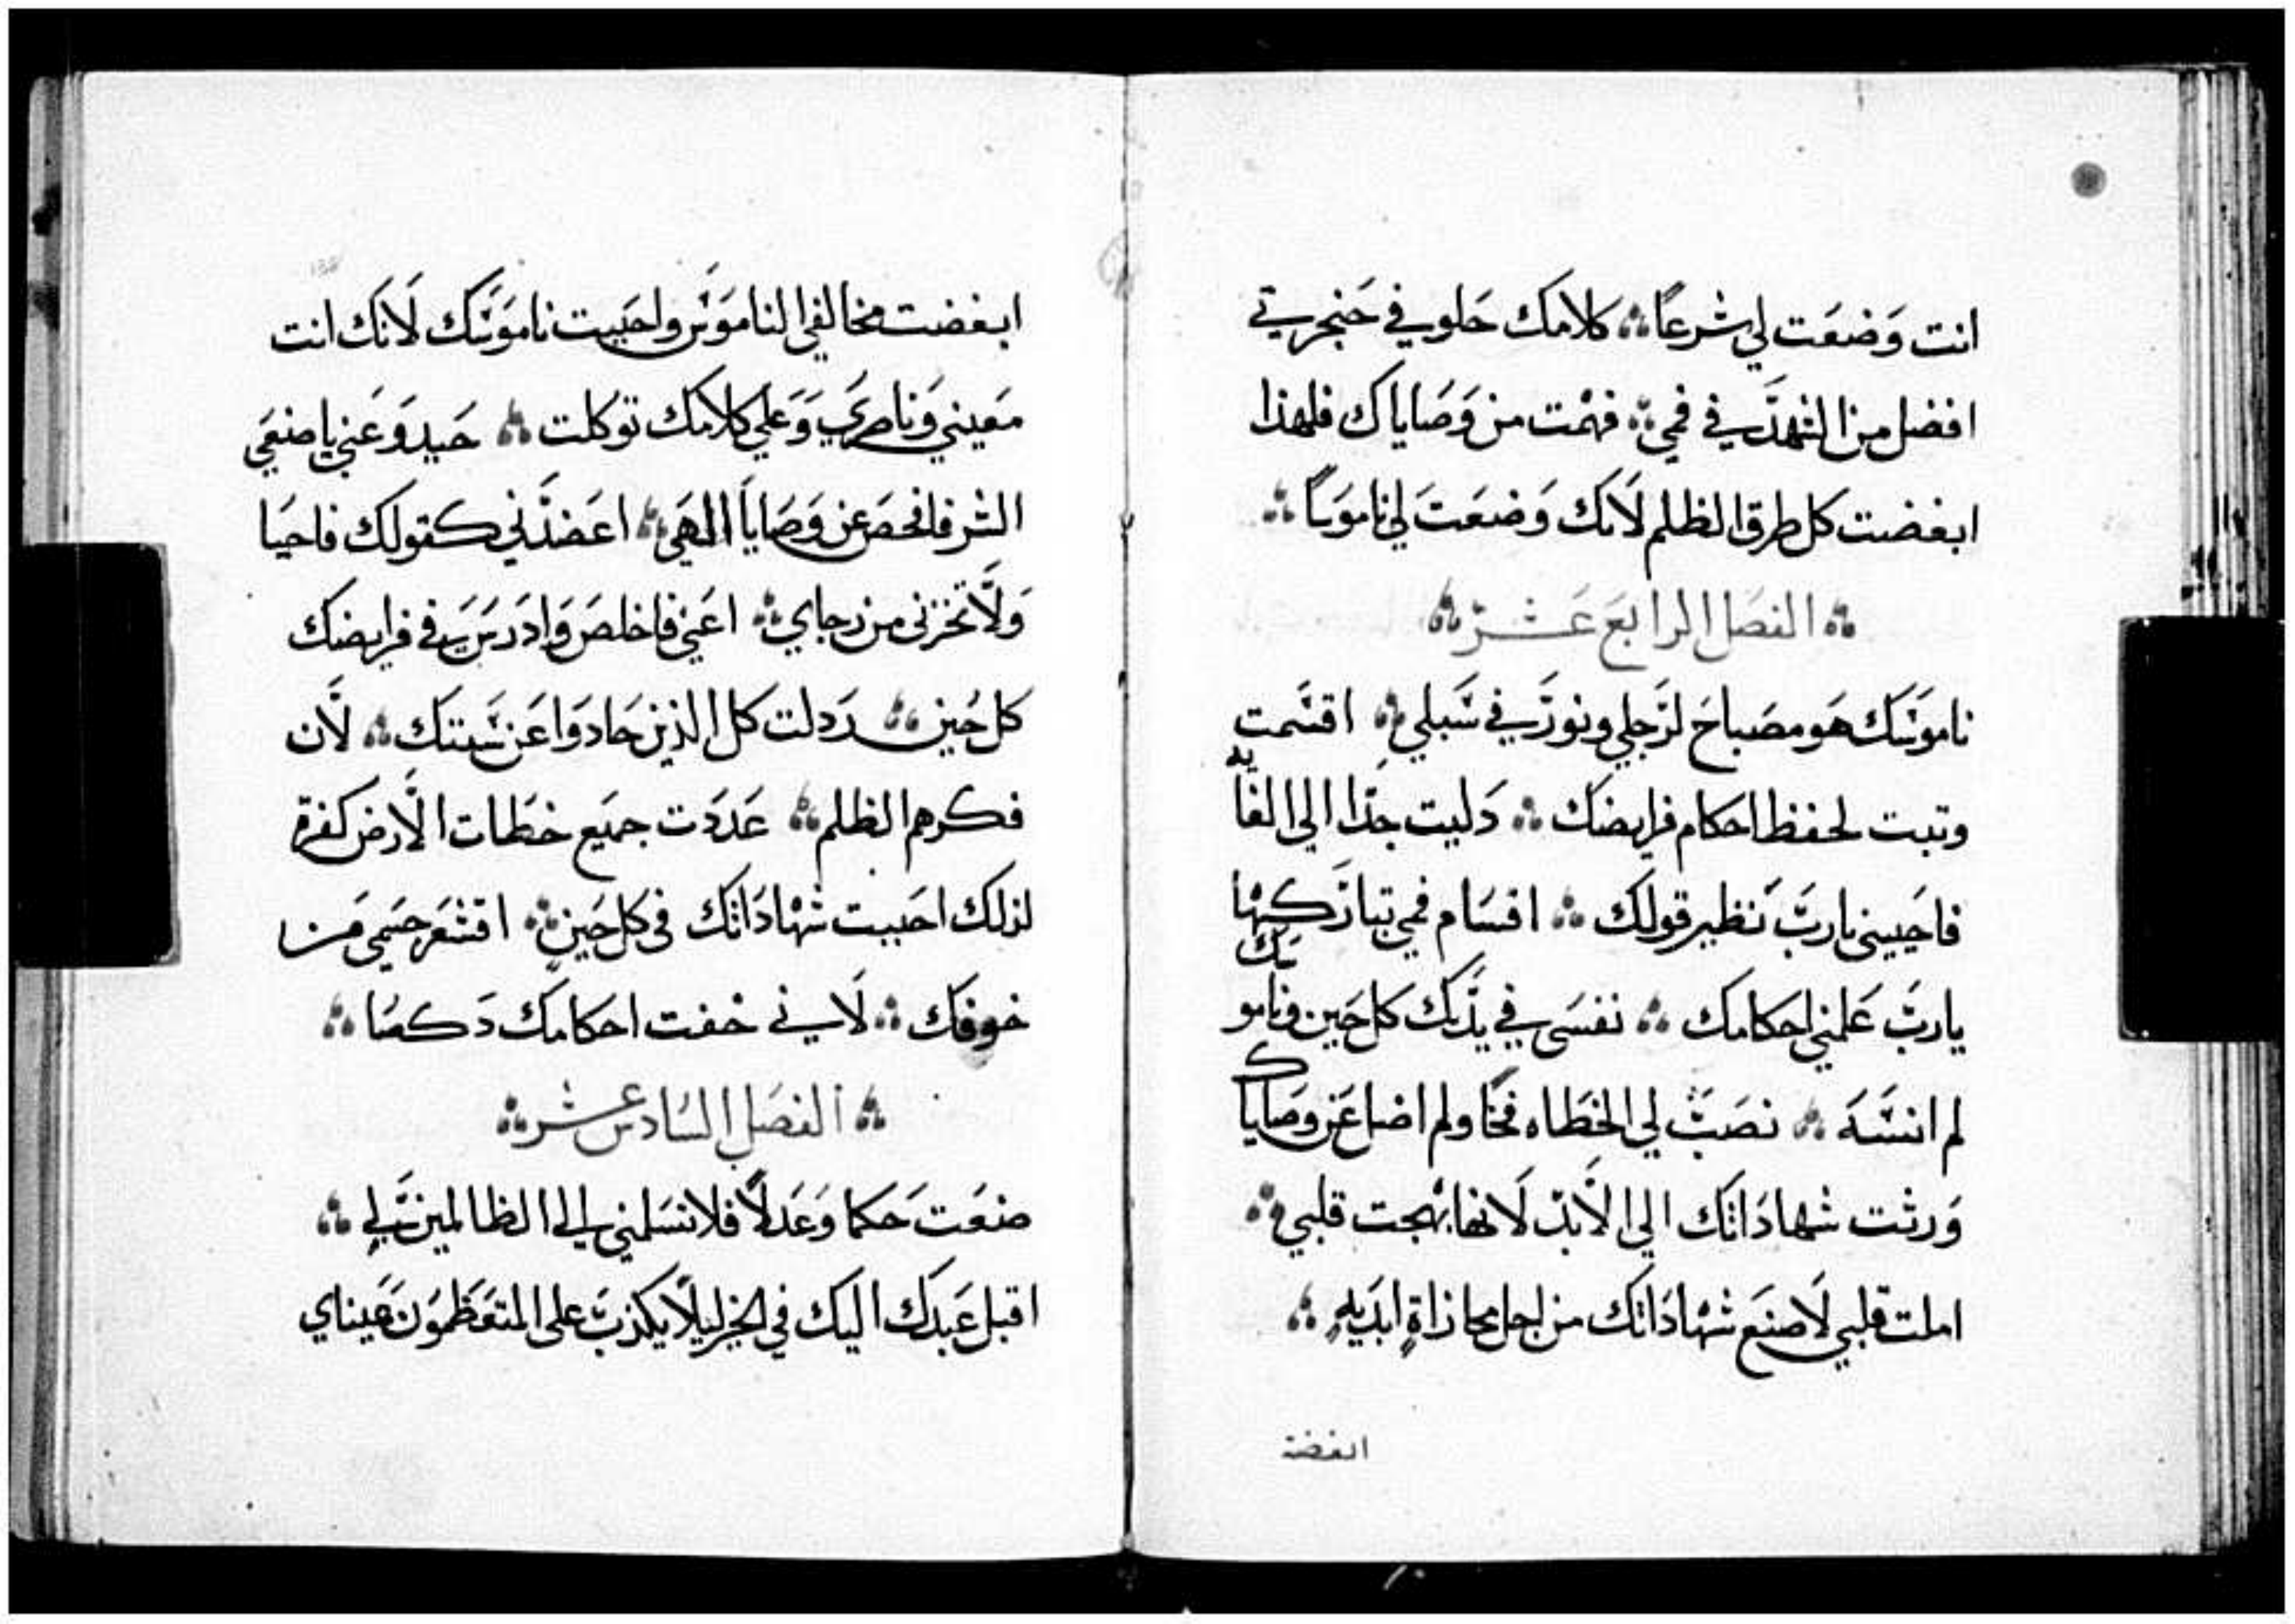 انت وَضعَت لي شرعاً ؞ كلامك حَلو في حَنجرتي
افضل من الشهد في فمي ؞ فهمت من وَصَاياك فلهذا
ابغضت كل طرق الظلم لَانك وَضعَتَ لي ناموسًا ؞
؞ الفصَل الرابَع عَشر ؞
ناموسَك هَو مصَباحَ لرَجلي ونور في سَبلي ؞ اقسَمت
وتبت لحفظ احكام فرايضك ؞ دَليت جدا الي الغايه
فاحَييني يارَبّ نَظير قولك ؞ اقسَام فمي تباركها
يارَبّ عَلمني احكامك ؞ نفسَي في يدَيك كل حَين وناموسَك
لم انسَهَ ؞ نصَبَ لي الخَطَاه فخًا ولم اضل عَن وصَاياك
وَرثت شهادَاتَك الي الَابد لَانها بهجت قلبي ؞
املت قلبي لَاصنَع شَهادَاتك من اجل مجازاةٍ ابدَيه ؞
ابغضت
ابغضت مخالفي الناموَس واحَبيت ناموَسَك لَانَك انت
مَعيني وَناصَري وَعَلي كلامَك توَكلت ؞ حَيدوَ عَني ياصنعَي
الشر فافحَصَ عَن وَصَايا الهَي ؞ اعَضدَني كقولَك فاحيَا
وَلَا تخزني من رجاي ؞ اعَني فاخلصَ وَادَرسَ في فرايضك
كل حَين ؞ رَدلت كل الذين حَادَوا عَن سَنتَك ؞ لَان
فكرهم الظلم ؞ عَدَدَت جميَع خطَات الَارض كفرة
لذلك احَببت شَهادَاتَك في كل حَين ؞ اقشعَر جسَمي مَن
خوفَك ؞ لَاني خفت احكامَك دَكصَا ؞
؞ الفصَل السَادس عشر ؞
صنعَتَ حَكما وَعَدلًا فلا تسَلمني الي الظالمين لي ؞
اقبل عَبدَك اليك في الخير ليلَا يكذبَ على المتعَظموَن عَيناي